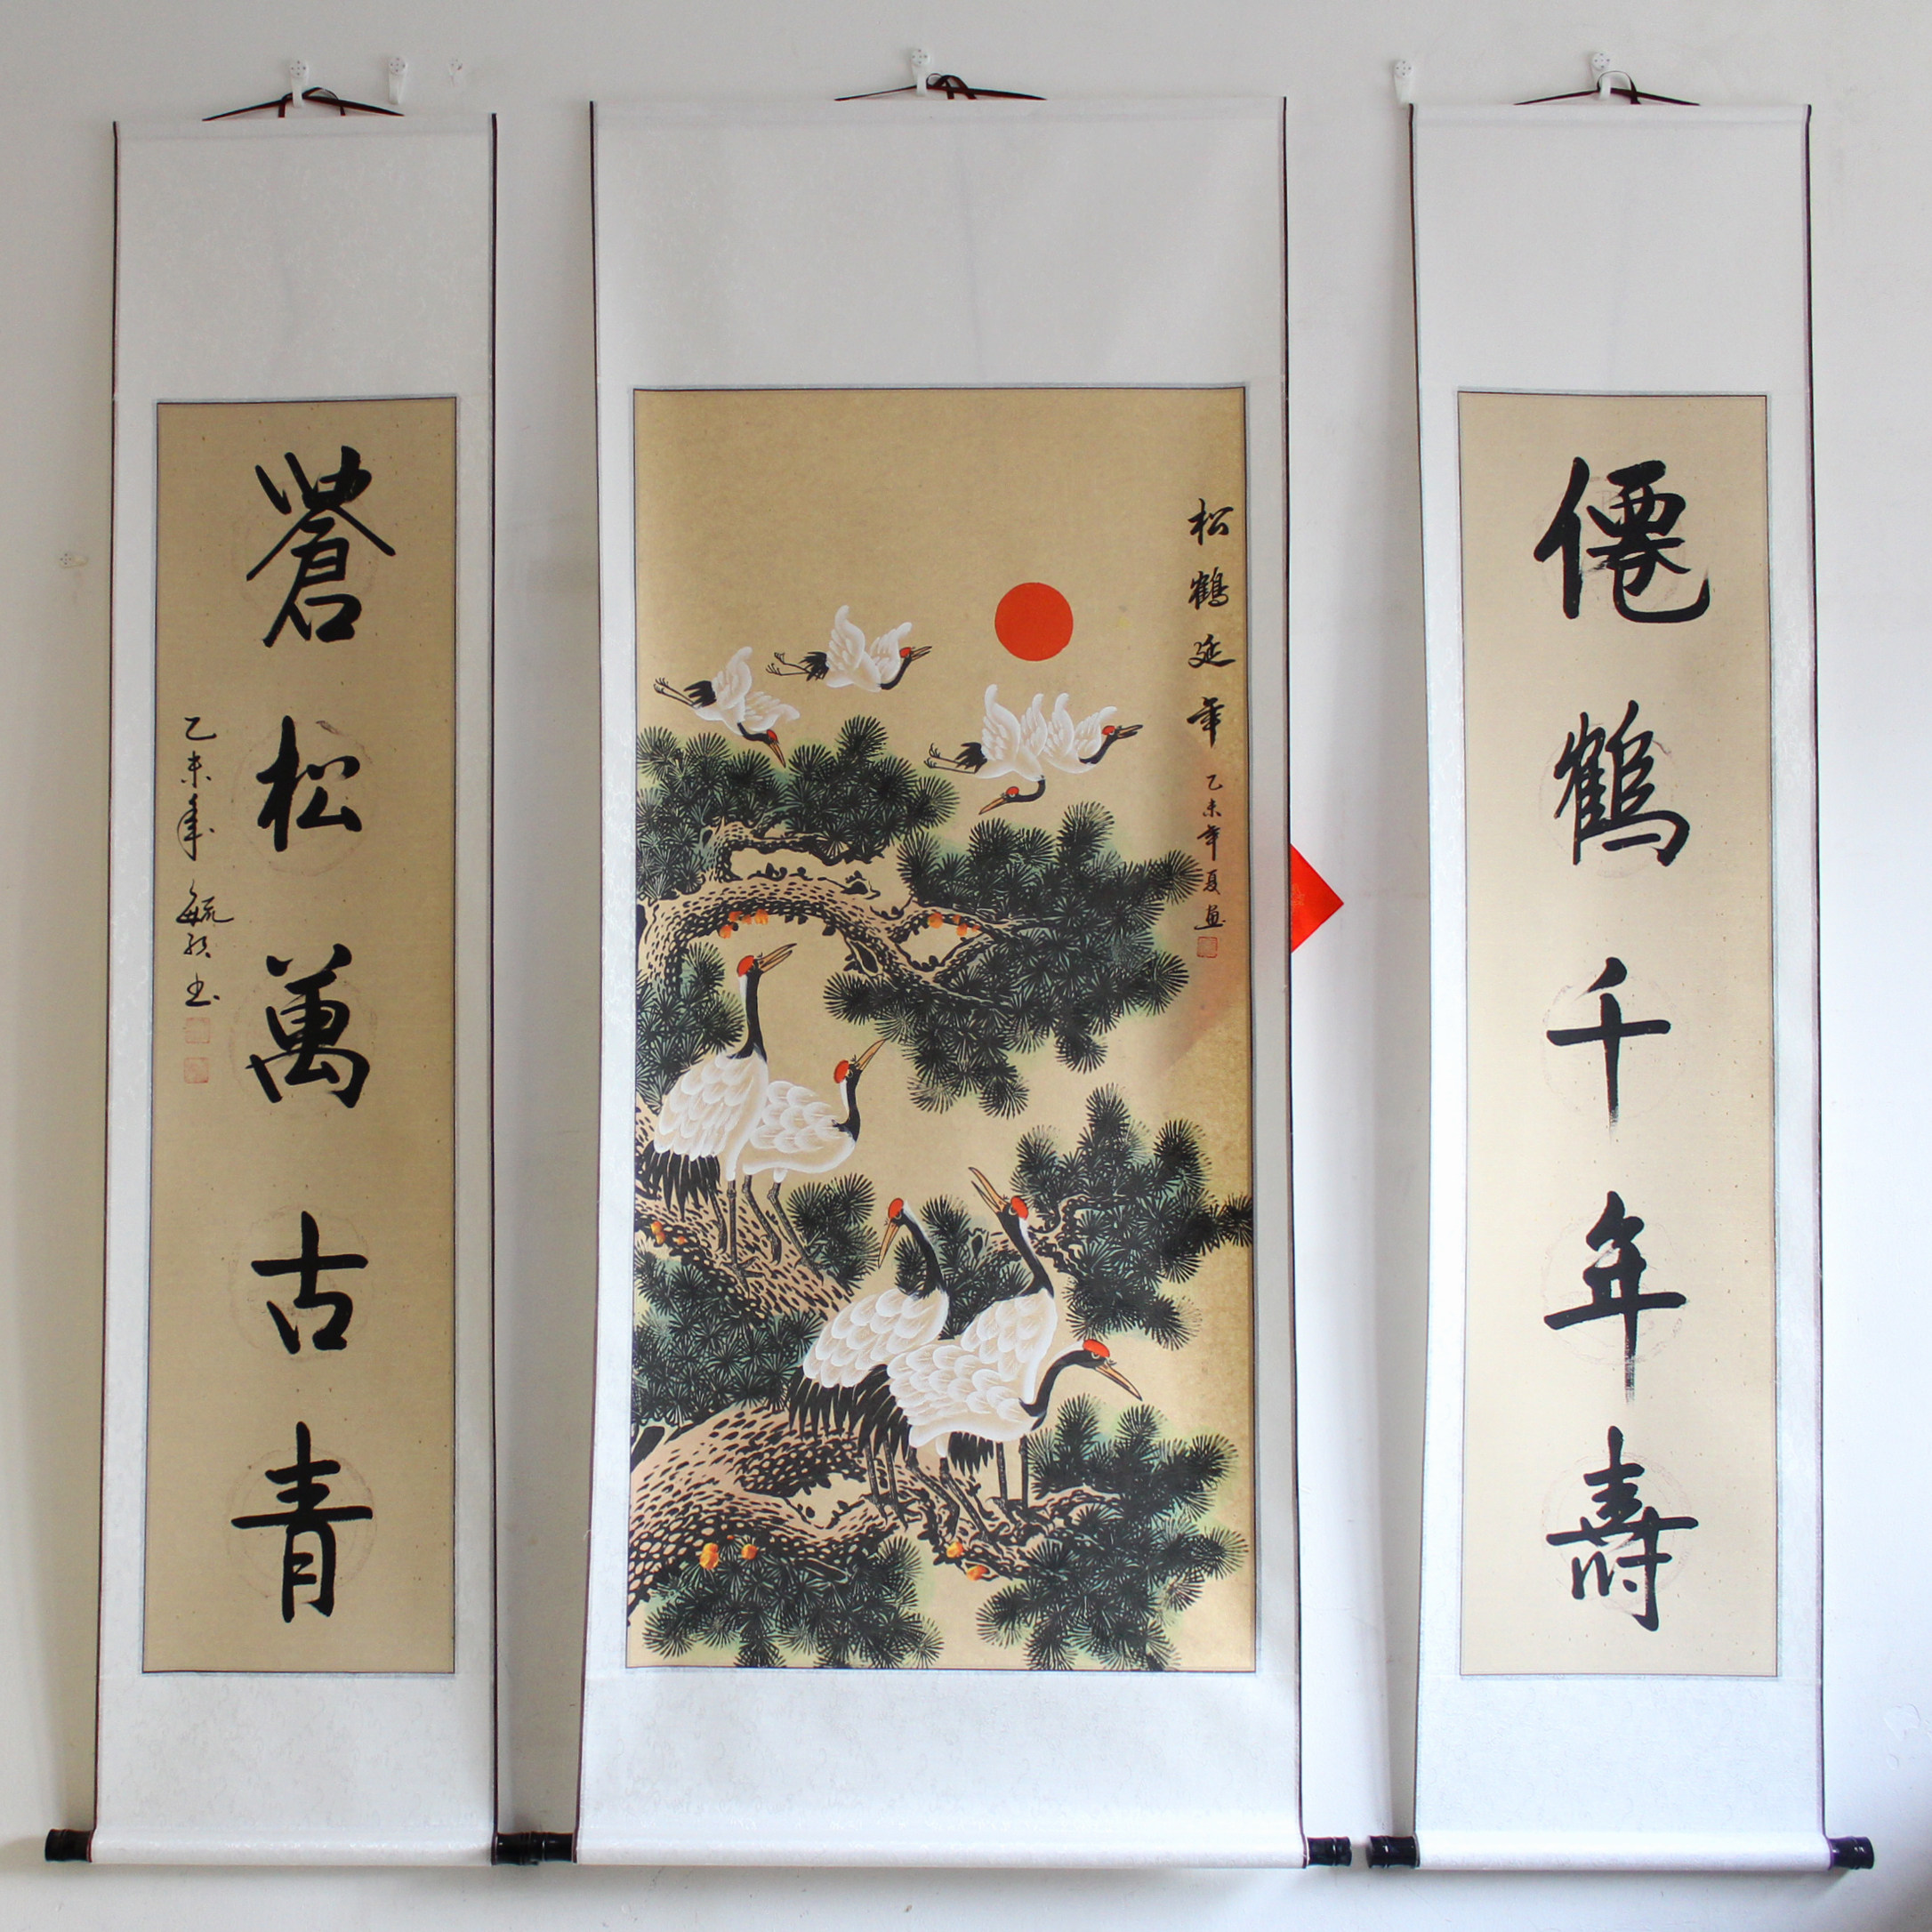 僊鶴千年壽
松鶴延年
乙未年夏畫
蒼松萬古青
乙未年
書